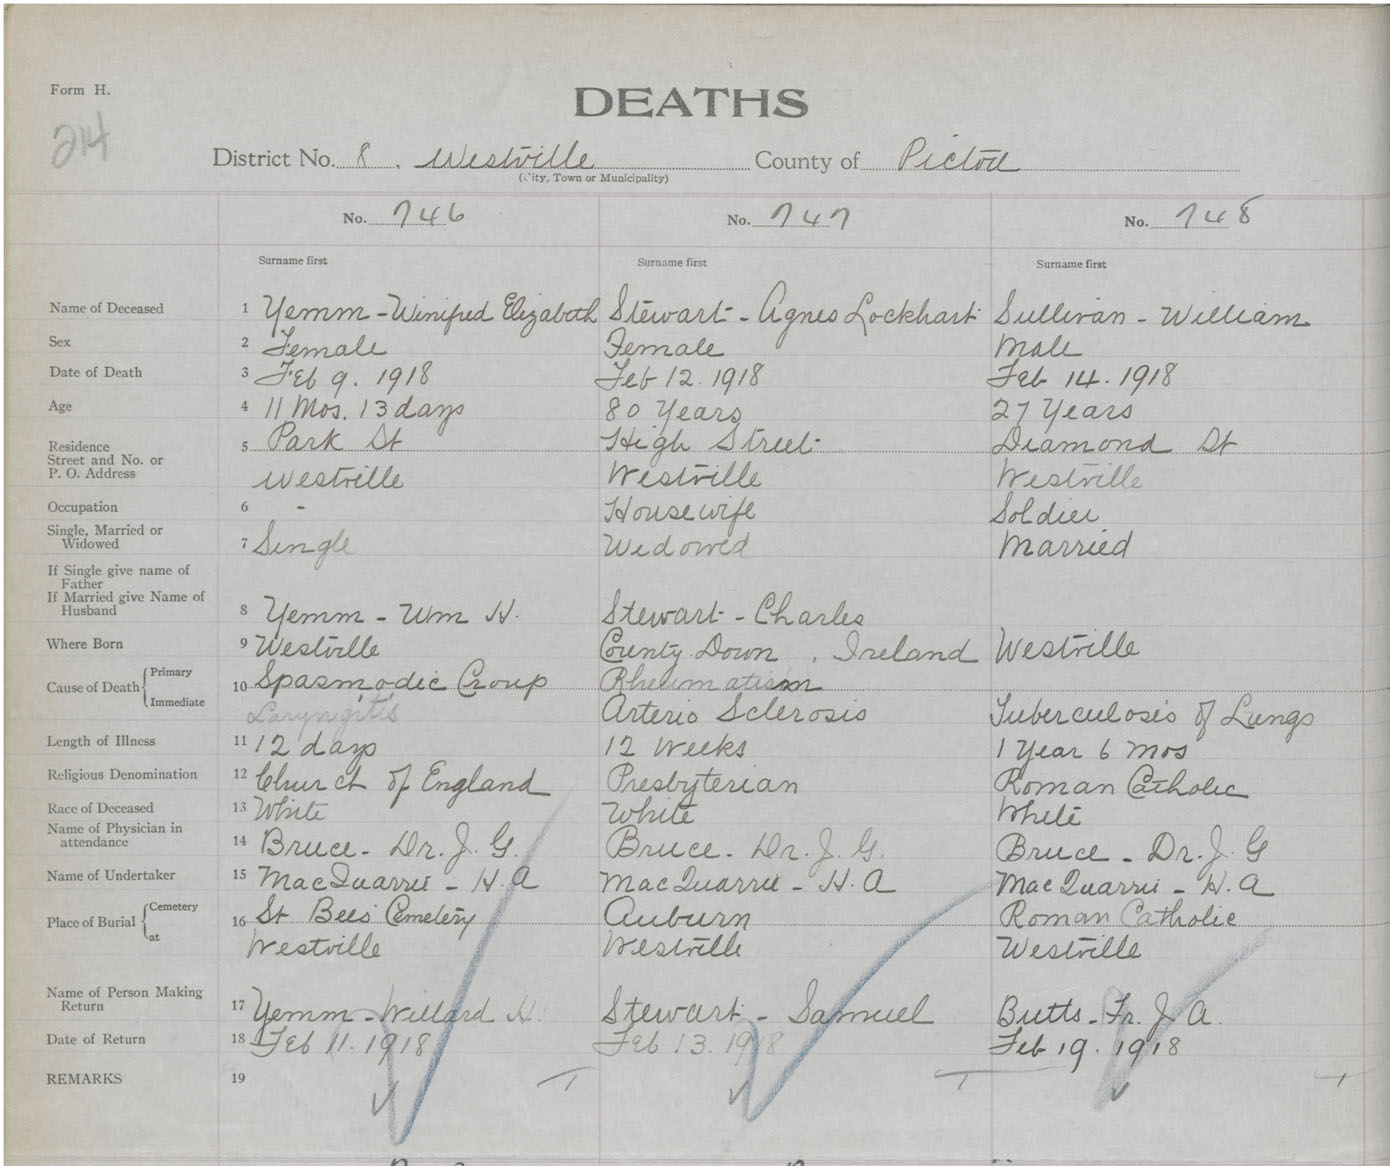 Form H.
214
DEATHS
District No. 8. Westville County of Pictou
(City, Town or Municipality)
No. 746 No. 747 No. 748
Surname first Surname first Surname first
Name of Deceased 1 Yemm - Winifred Elizabeth Stewart - Agnes Lockhart Sullivan - William
Sex 2 Female Female Male
Date of Death 3 Feb 9. 1918 Feb 12. 1918 Feb 14. 1918
Age 4 11 Mos. 13 days 80 Years 27 Years
Residence 5 Park St High Street Diamond St
Street and No. or
P. O. Address Westville Westville Westville
Occupation 6 - Housewife Soldier
Single, Married or
Widowed 7 Single Widowed Married
If Single give name of
Father
If Married give Name of
Husband 8 Yemm - Wm H. Stewart - Charles
Where Born 9 Westville County Down, Ireland Westville
Cause of Death { Primary 10 Spasmodic Croup Rheumatism
Immediate Laryngitis Arterio Sclerosis Tuberculosis of Lungs
Length of Illness 11 12 days 12 Weeks 1 Year 6 mos
Religious Denomination 12 Church of England Presbyterian Roman Catholic
Race of Deceased 13 White White White
Name of Physician in
attendance 14 Bruce - Dr. J. G. Bruce - Dr. J. G. Bruce - Dr. J. G
Name of Undertaker 15 MacQuarrie - H. A MacQuarrie - H. A MacQuarrie - H. A
Place of Burial { Cemetery 16 St Bees' Cemetery Auburn Roman Catholic
at Westville Westville Westville
Name of Person Making
Return 17 Yemm - Willard H. Stewart - Samuel Butts - Fr. J. A.
Date of Return 18 Feb 11. 1918 Feb 13. 1918 Feb 19. 1918
REMARKS 19